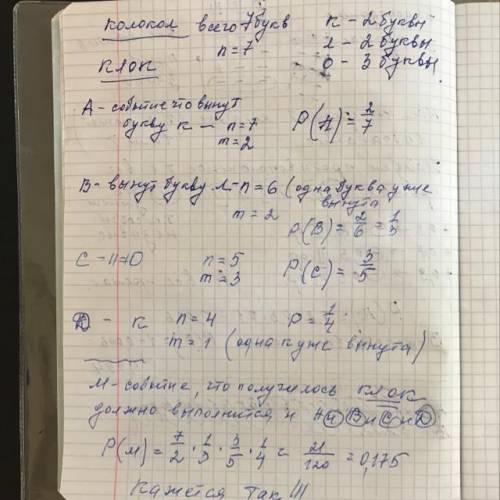 колокол всего 7 букв к - 2 буквы
n = 7 л - 2 буквы
клок о - 3 буквы
А - событие что вынут
букву к — n = 7 P(A) = 2/7
m = 2
В - вынут букву л - n = 6 (одна буква уже
вынута
m = 2 P(B) = 2/6 = 1/3
С - // - О n = 5 P(C) = 3/5
m = 3
D - к n = 4 P = 1/4
m = 1 (одна к уже вынута)
М - событие, что получилось клок
должно выполнится и А и В и С и D
P(M) = 7/2 · 1/3 · 3/5 · 1/4 = 21/120 = 0,175
Кажется так!!!